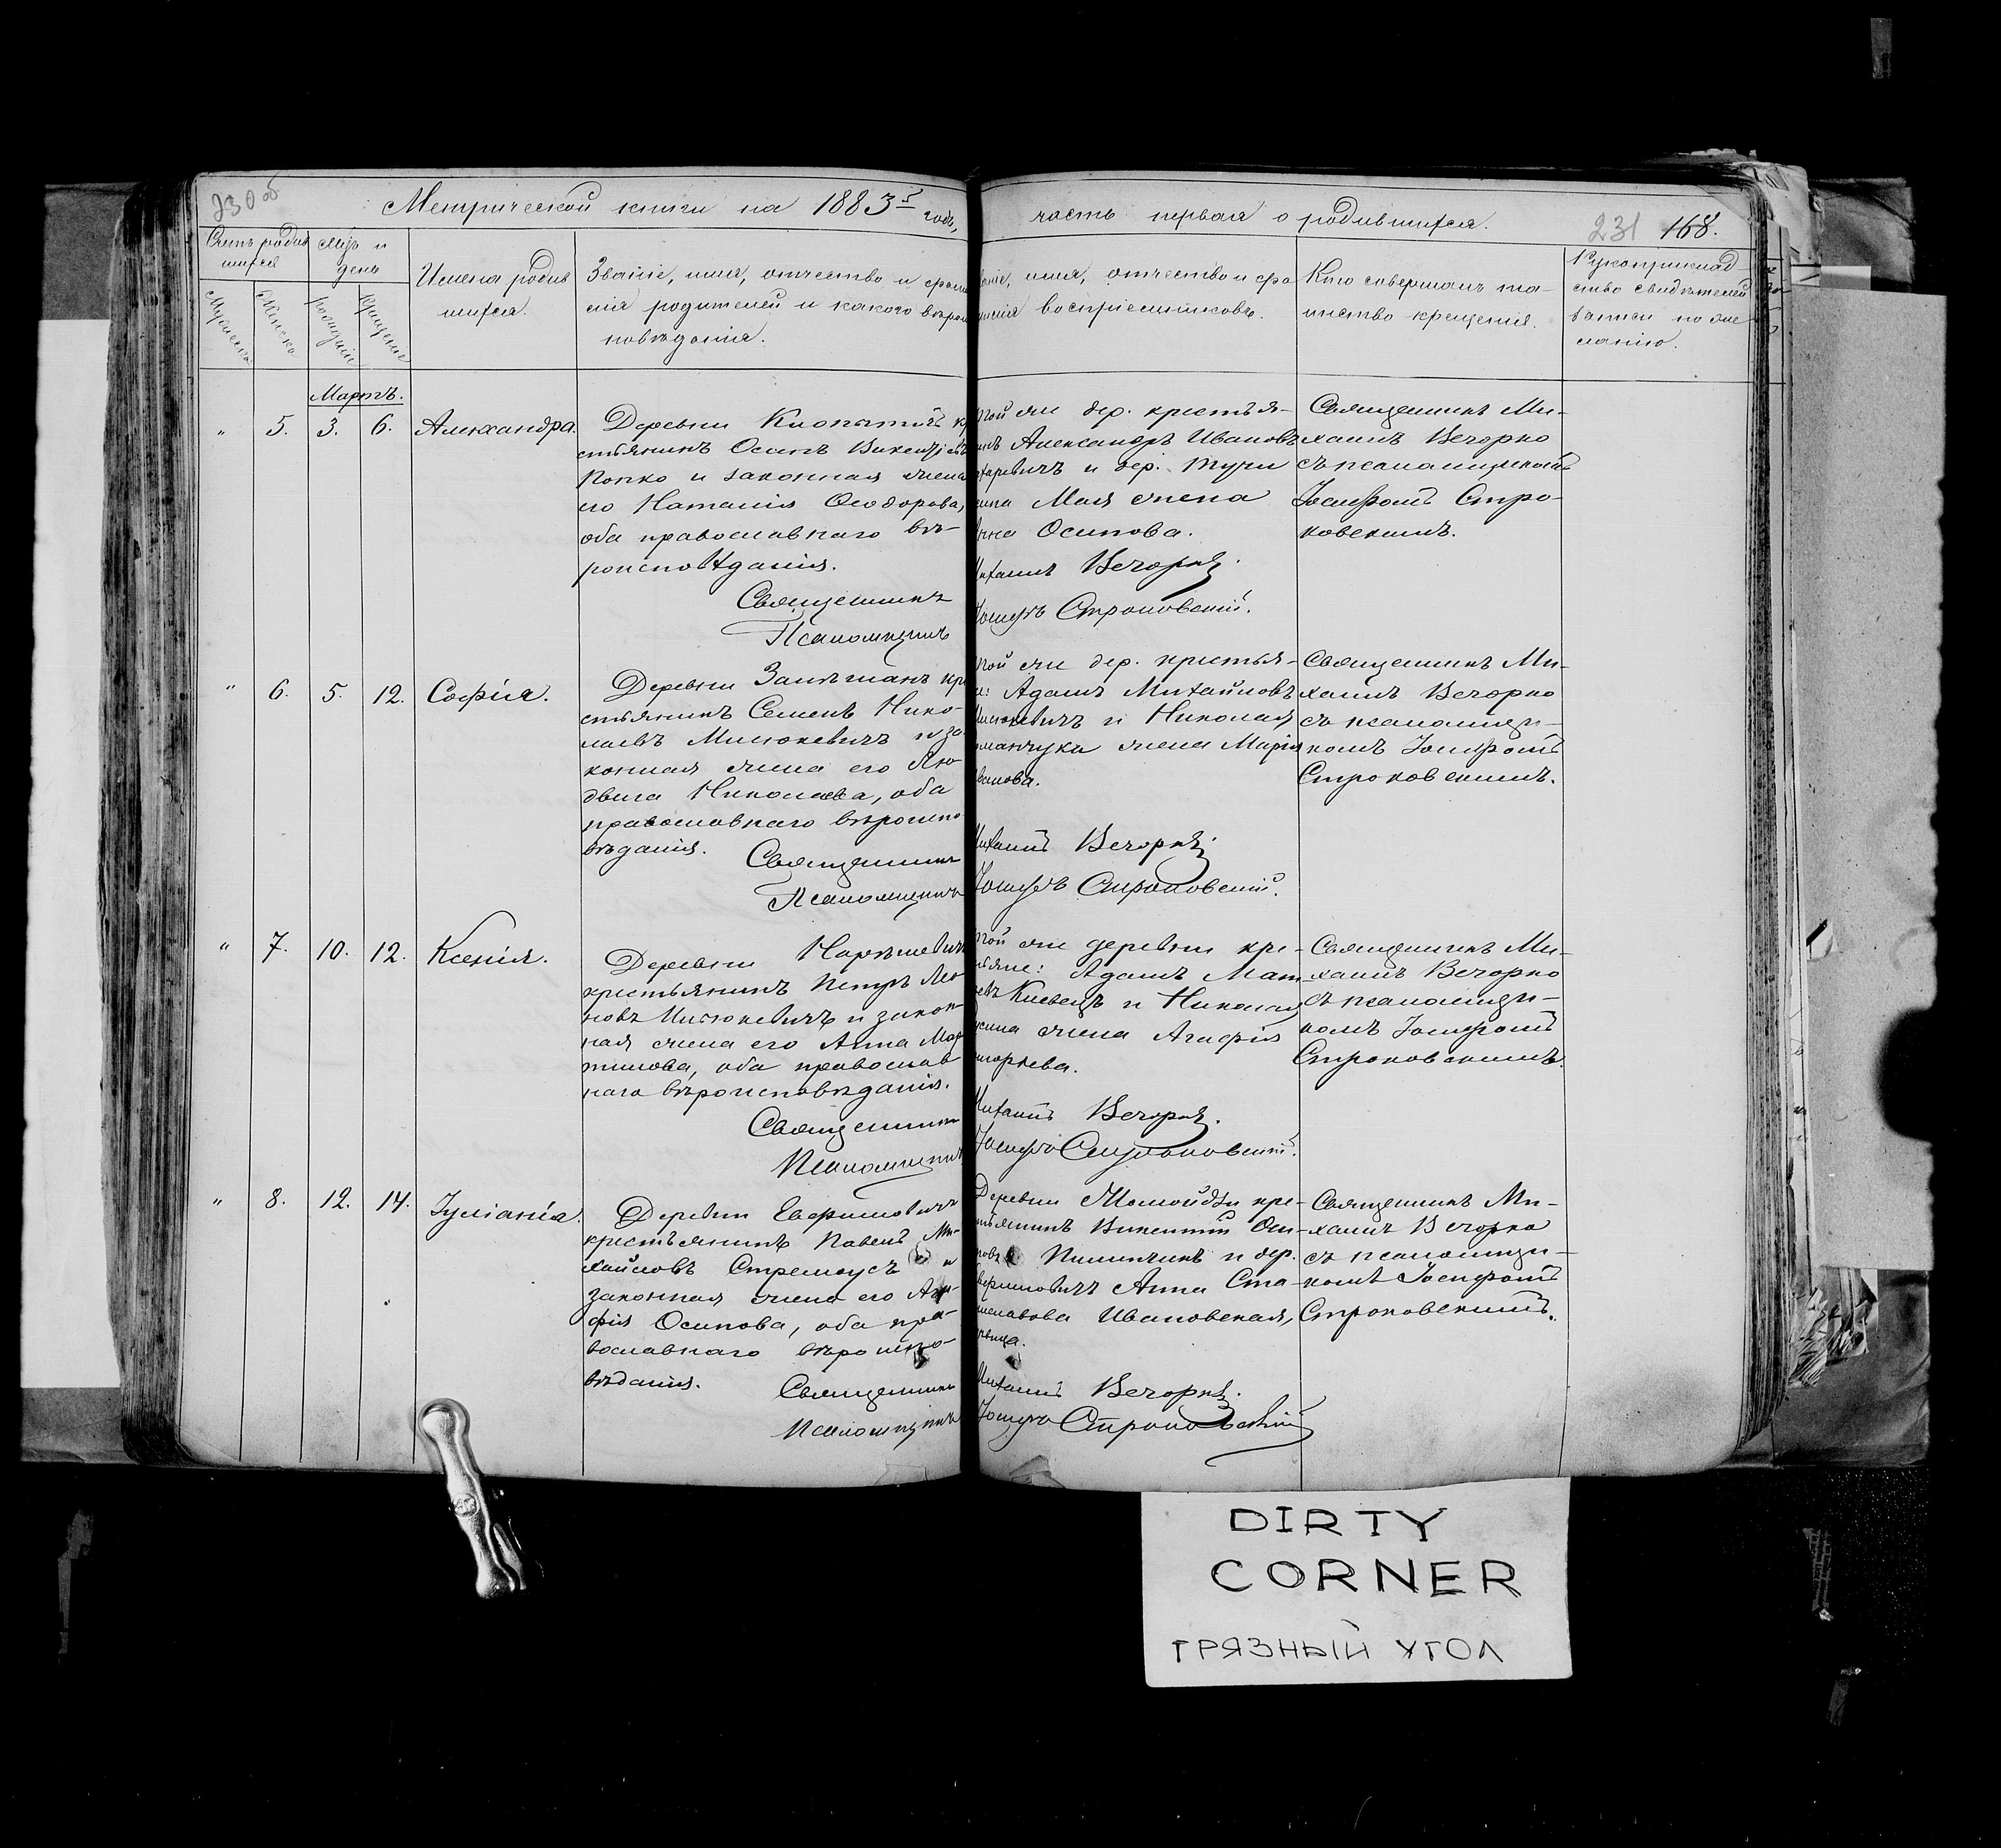 230 об
Метрической книги на 1883 г годъ,
часть первая о родившихся.
231 168.
Счетъ родив
шихся
Мужеска
Женска
Мѣц. и
день
рожденія
крещенія
Имена родив
шихся.
Званіе, имя, отчество и фами
лія родителей и какого вѣроис
повѣданія.
имя, отчество и фа
милія воспріемниковъ.
Кто совершалъ та-
инство крещенія.
Рукоприклад-
ство свидѣтелей
записи по же
ланію.
Мартъ.
" 5. 3. 6. Александра.
Деревни кр
стьянинъ Осипъ Викентіевъ
Попко и законная жена
его Наталія Ѳеодорова,
оба православнаго вѣ-
роисповѣданія.
Священникъ
Псаломщикъ
той же дер. крестья-
нъ Александръ Ивановъ
и дер. Тучи
жена
Осипова.
Михаилъ Вечорко.
Іосифъ Строковскій.
Священникъ Ми-
хаилъ Вечорко
съ псаломщикомъ
Іосифомъ Стро-
ковскимъ.
" 6. 5. 12. Софія.
Деревни кр
стьянинъ Семенъ Нико-
лаевъ Мисюкевичъ и за
конная жена его Лю
двига Николаева, оба
православнаго вѣроиспо
вѣданія.
Священникъ
Псаломщикъ
той же дер. крестья-
Адамъ Михайловъ
Мисюкевичъ и Николая
жена Марія
Иванова.
Михаилъ Вечорко.
Іосифъ Строковскій.
Священникъ Ми-
хаилъ Вечорко
съ псаломщи-
комъ Іосифомъ
Строковскимъ.
" 7. 10. 12. Ксенія.
Деревни
крестьянинъ Петръ Лео
новъ Мисюкевичъ и закон
ная жена его Анна Мар
тинова, оба православ
наго вѣроисповѣданія.
Священникъ
Псаломщикъ
той же деревни кре-
стьяне: Адамъ Мат
и Николая
жена Агафія
Григорьева.
Михаилъ Вечорко.
Іосифъ Строковскій.
Священникъ Ми-
хаилъ Вечорко
съ псаломщи-
комъ Іосифомъ
Строковскимъ.
" 8. 12. 14. Іуліанія.
Деревни Ефимовичъ
крестьянинъ Павелъ Ми-
хайловъ Стремоусъ и
законная жена его Ага-
фія Осипова, оба пра-
вославнаго вѣроиспо-
вѣданія.
Священникъ
Псаломщикъ
Деревни кре-
стьянинъ Викентій Оси-
повъ и дер.
Анна Ста-
Ивановская,
дѣвица.
Михаилъ Вечорко.
Іосифъ Строковскій
Священникъ Ми-
хаилъ Вечорко
съ псаломщи-
комъ Іосифомъ
Строковскимъ.
DIRTY
CORNER
ГРЯЗНЫЙ УГОЛ